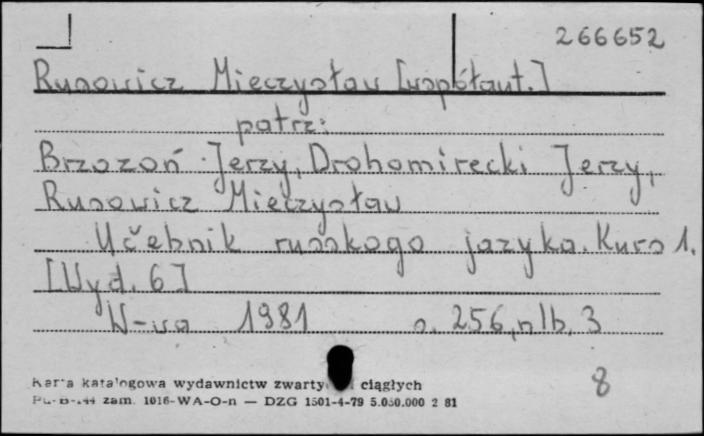 266652
Rusowicz Mieczysław [współaut.]
patrz:
Brzozoń Jerzy, Drohomirecki Jerzy,
Rusowicz Mieczysław
Učebnik russkogo jazyka. Kurs 1.
[Wyd. 6]
W-wa 1981 s. 256, nlb. 3
Karta katalogowa wydawnictw zwartych ciągłych
Pu-B-144 zam. 1016-WA-O-n — DZG 1501-4-79 5.050.000 2 81
8